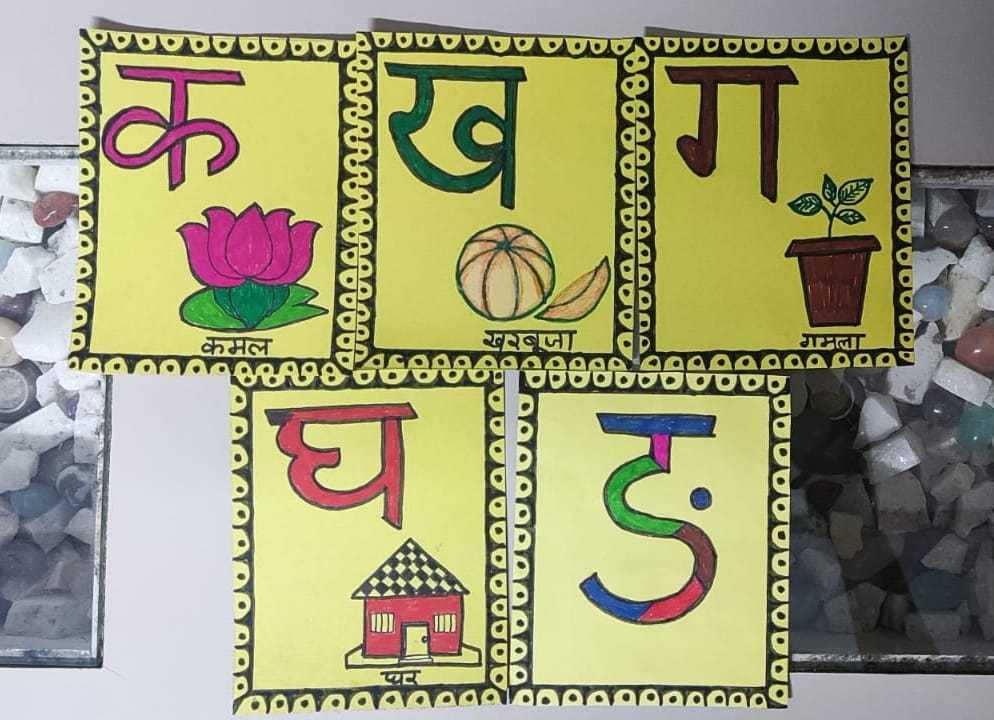 क
कमल
ख
खरबूजा
ग
गमला
घ
घर
ङ